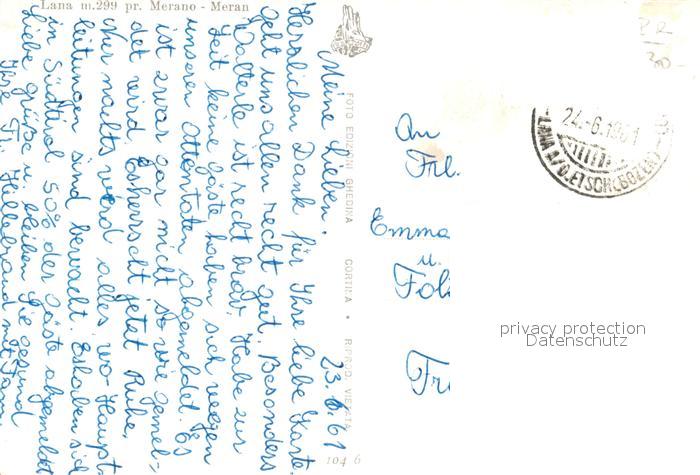 Lana m.299 pr. Merano - Meran
23. 6. 61
Meine Lieben.
Herzlichen Dank für Ihre liebe Karte.
geht uns allen recht gut. Besonders
Walterle ist recht brav. Habe zur
Zeit keine Gäste, haben sich wegen
unseren Attentaten abgemeldet. Es
ist zwar gar nicht so wie gemel-
det wird. Es herrscht jetzt Ruhe.
Nur nachts werd alles wo Haupt
leitungen sind bewacht. Es haben sich
in Südtirol 50% der Gäste abgemeldet
Liebe Grüße u. bleiben Sie gesund
Ihre Fr. Hillebrand mit Fam.
FOTO EDIZIONI GHEDINA CORTINA • RIPROD. VIETATA
104 6
An
Frl.
Emma
u.
Fri
24.-6.1961
LANA A/D.ETSCH (BOZEN)
30-
privacy protection
Datenschutz